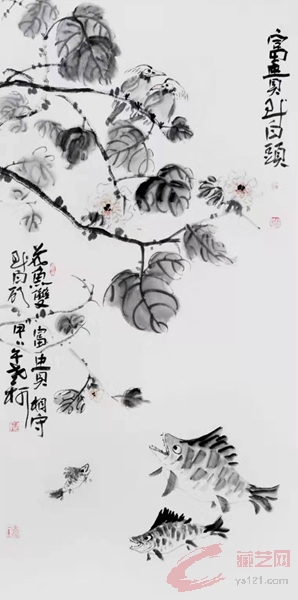 富貴到白頭
花魚雙〻富貴相守
到白頭甲午老柯
藏艺网
ys121.com